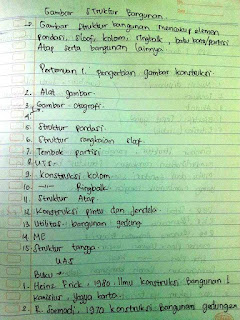 Gambar Struktur Bangunan
→ Gambar struktur bangunan mencakup elemen
pondasi, sloof, kolom, ringbalk, batu bata/partisi
Atap serta bangunan lainnya
Pertemuan 1. pengertian gambar konstruksi
2. Alat gambar
3. Gambar otografi
4
5. Struktur pondasi
6. Struktur rangkaian slof
7. Tembok partisi
8. UTS
9. Konstruksi kolom
10. —||— Ringbalk
11. Struktur Atap
12. Konstruksi pintu dan jendela
13. Utilitas bangunan gedung
14. ME
15. Struktur tangga
UAS
Buku →
1. Heinz Frick 1980 Ilmu konstruksi Bangunan 1
kanisius, Jogja karta
2. R. Soemadi, 1970 konstruksi Bangunan gedungan